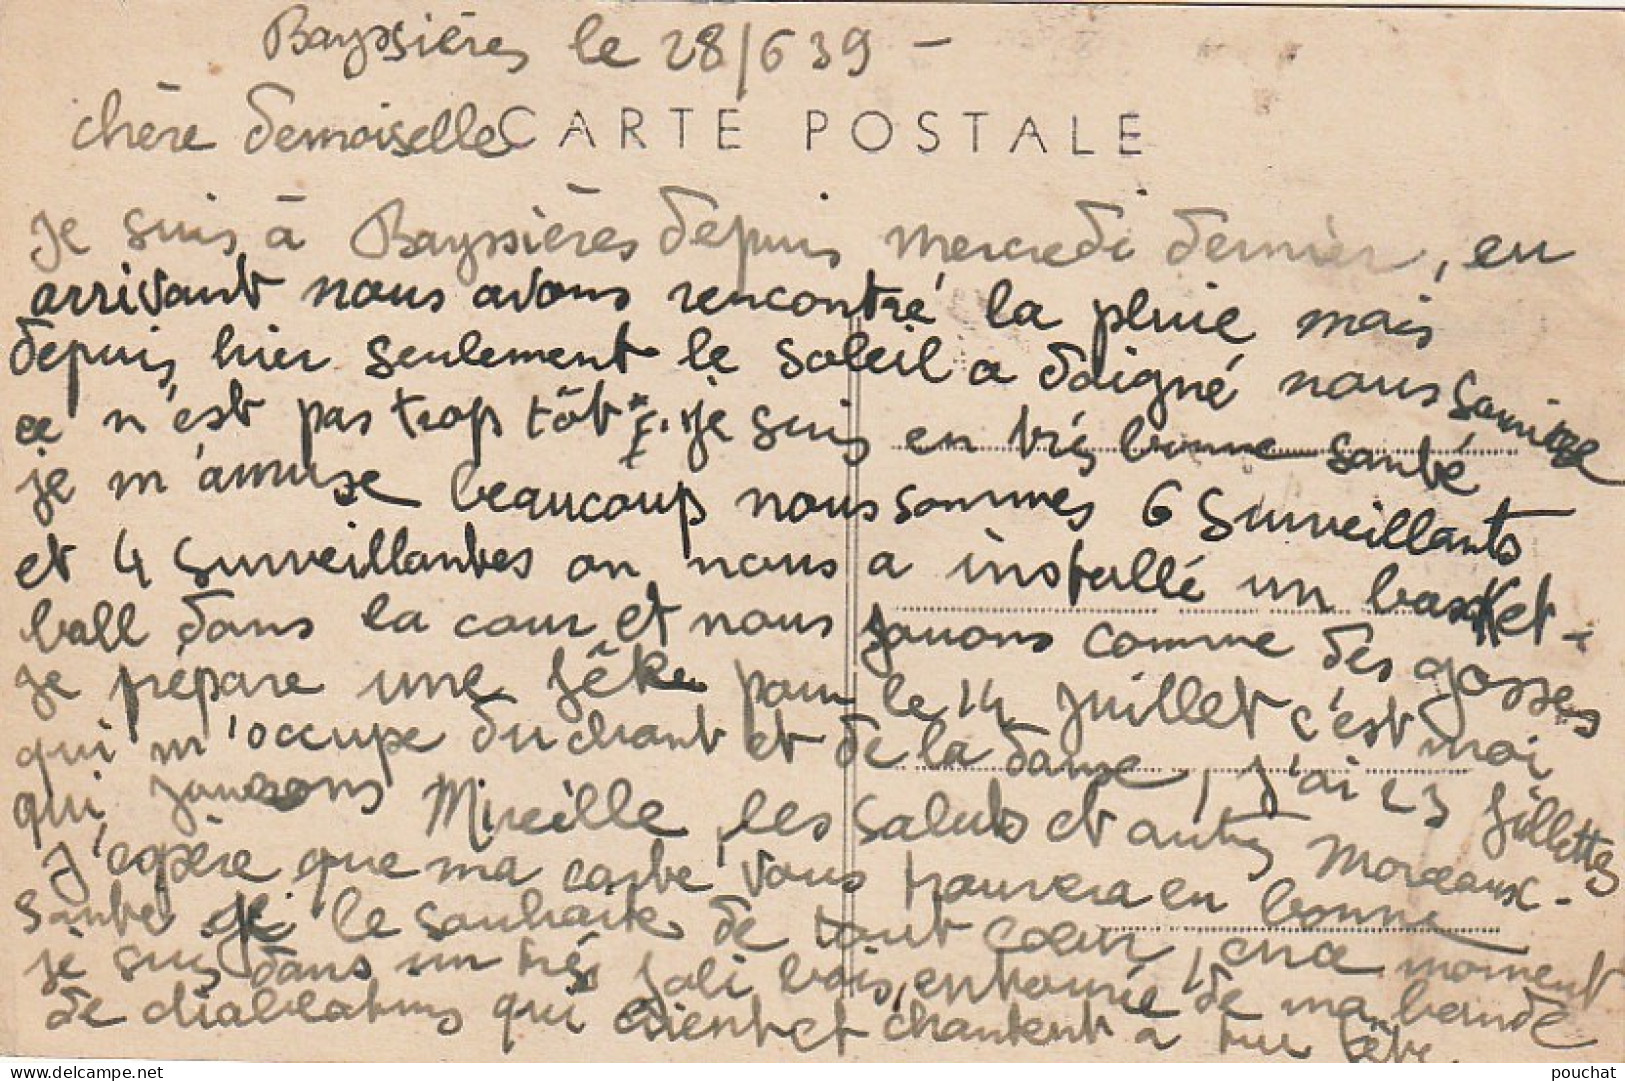 Bayssières le 28/6 39 –
chère demoiselle CARTE POSTALE
je suis à Bayssières depuis mercredi dernier, en
arrivant nous avons rencontré la pluie mais
depuis hier seulement le soleil a daigné nous sourire
ce n'est pas trop tôt. je suis en très bonne santé
je m'amuse beaucoup nous sommes 6 surveillants
et 4 surveillantes on nous a installé un basket-
ball dans la cour et nous jouons comme des gosses
je prépare une fête pour le 14 juillet c'est moi
qui m'occupe du chant et de la danse, j'ai 23 fillettes
qui Mireille, les saluts et autres morceaux.
J'espère que ma carte vous trouvera en bonne
santé je le souhaite de tout coeur, en ce moment
je suis dans un très joli bois, entourée de ma bande
de diablotins qui crient et chantent à tue tête.
pouchat